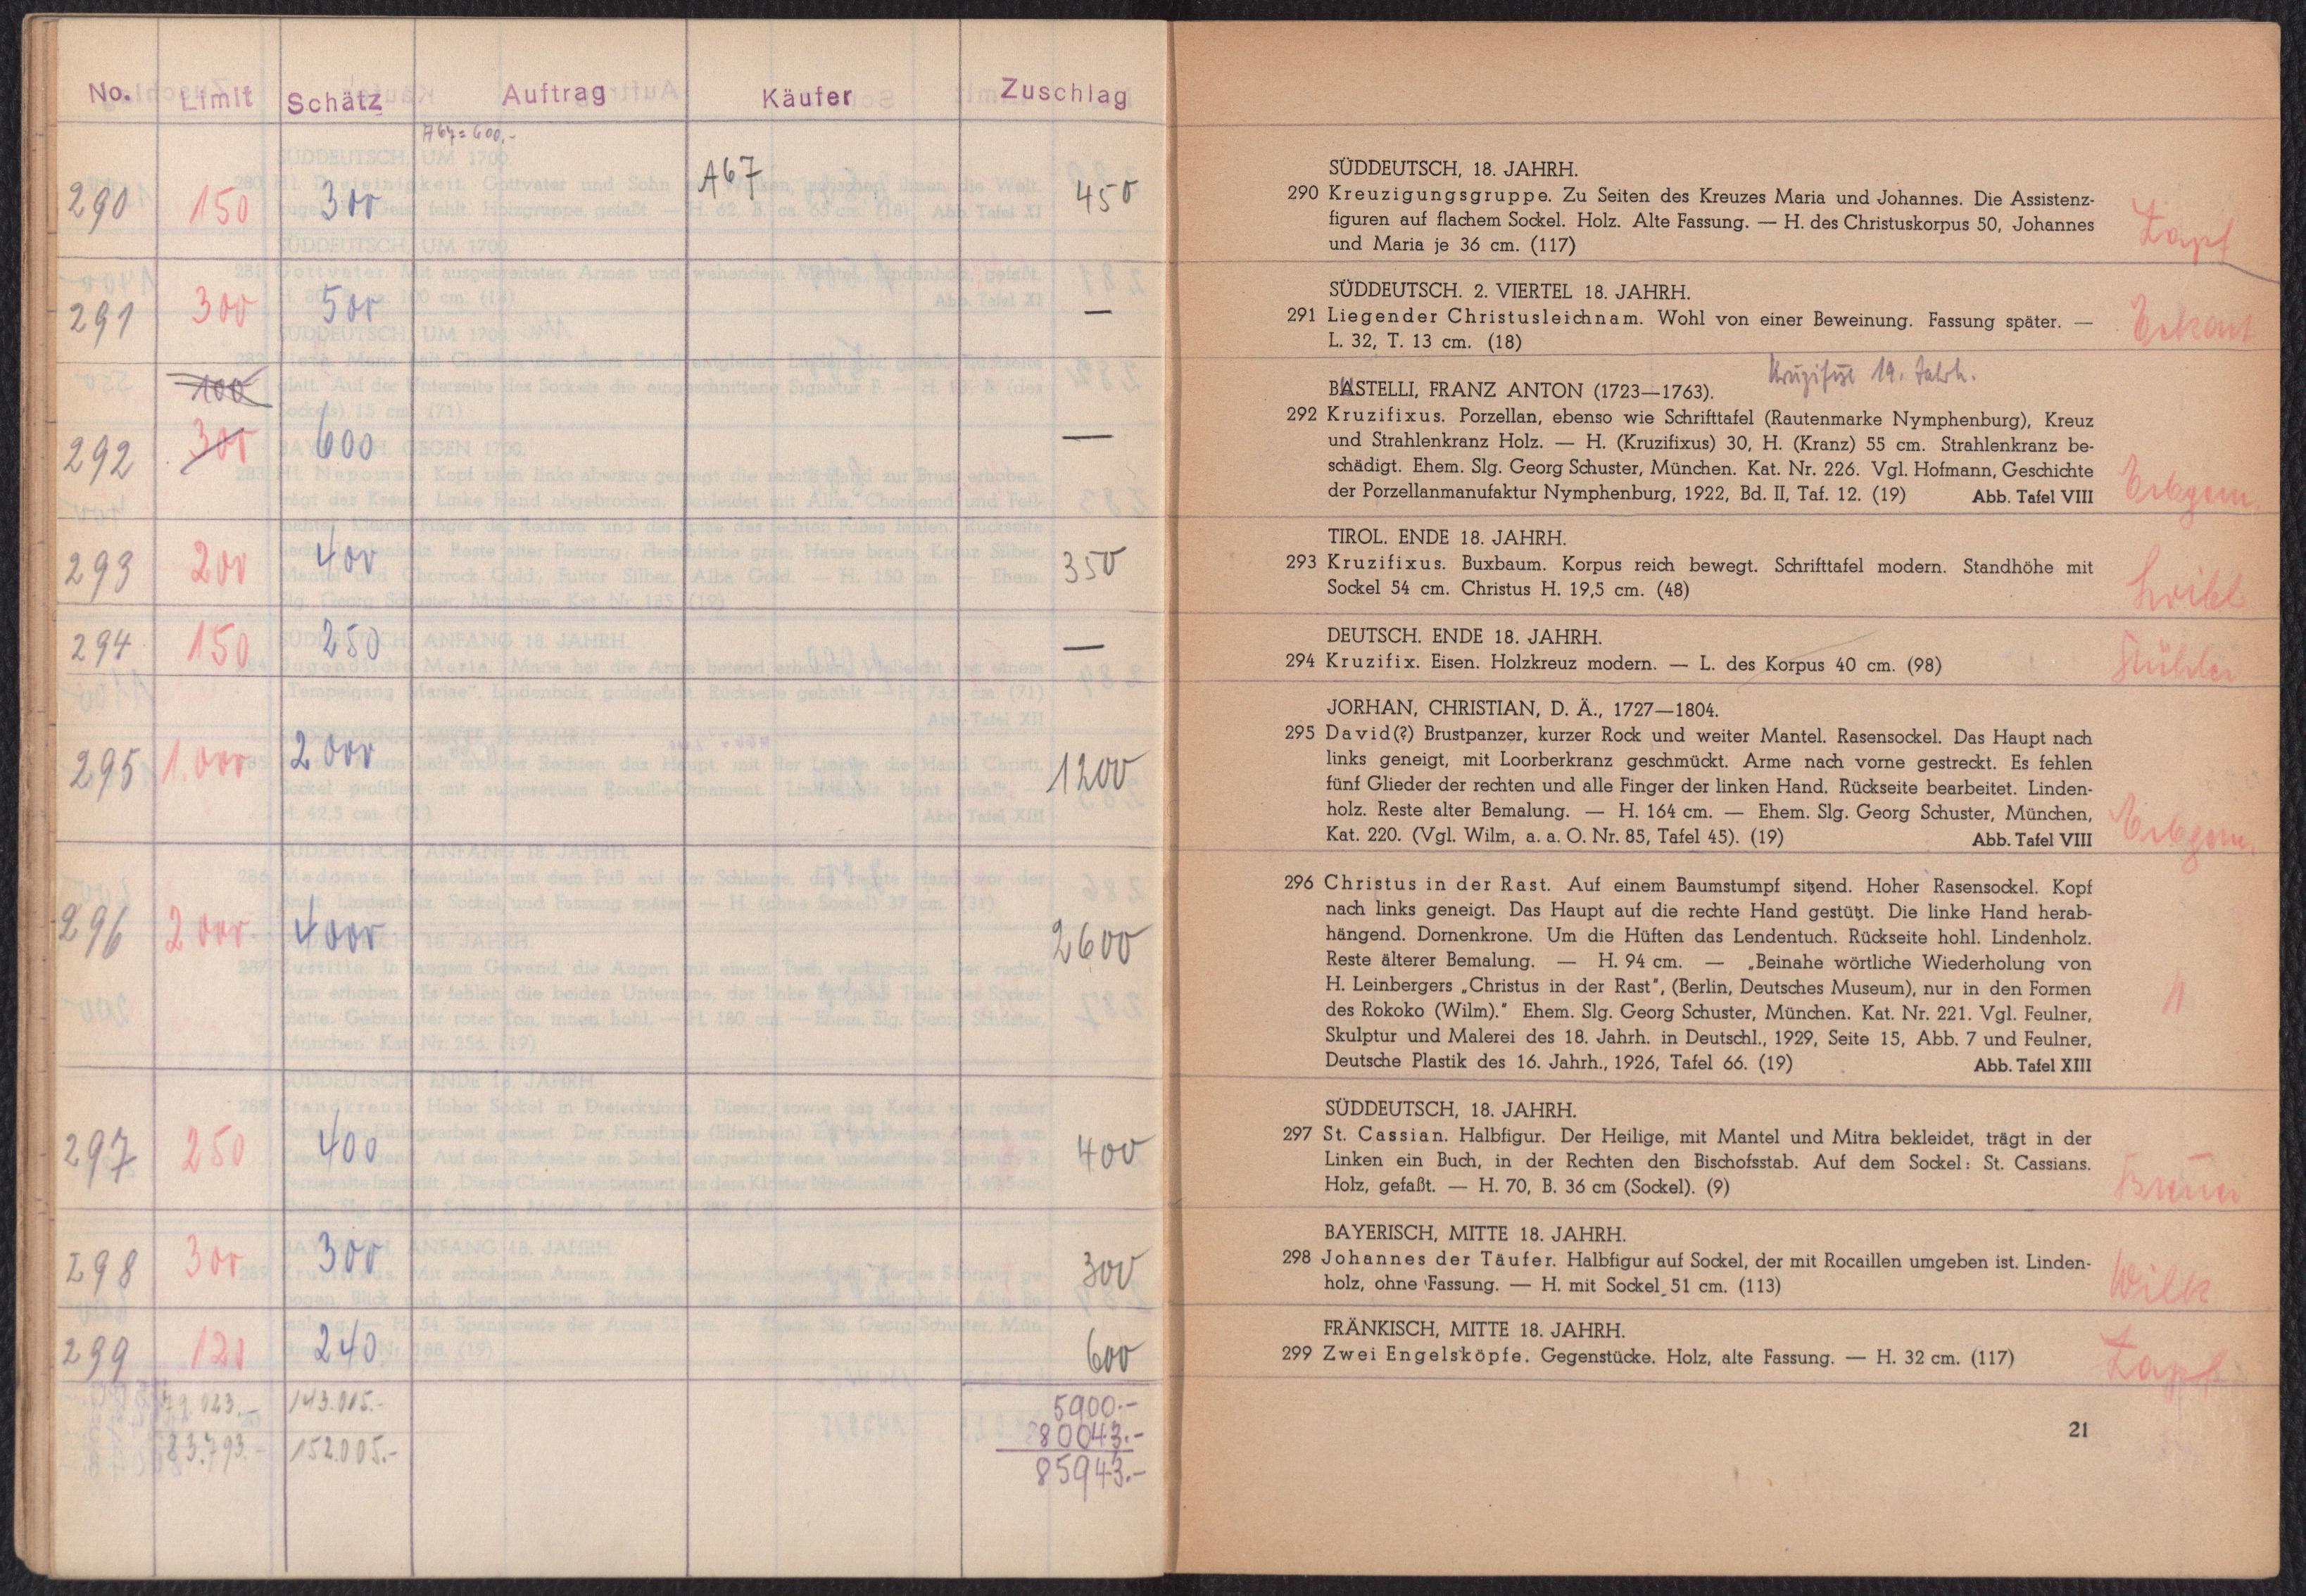 No. Limit Schätz Auftrag Käufer Zuschlag
A67=600.-
290 150 300 A67 450
291 300 500 —
100
292 300 600 —
293 200 400 350
294 150 250 —
295 1.000 2000 1200
296 2000 4000 2600
297 250 400 400
298 300 300 300
299 120 240 600
143.005.- 5900.-
83.793.- 152.005.- 80043.-
85943.-
SÜDDEUTSCH, 18. JAHRH.
290 Kreuzigungsgruppe. Zu Seiten des Kreuzes Maria und Johannes. Die Assistenz-
figuren auf flachem Sockel. Holz. Alte Fassung. — H. des Christuskorpus 50, Johannes
und Maria je 36 cm. (117)
Zapf
SÜDDEUTSCH. 2. VIERTEL 18. JAHRH.
291 Liegender Christusleichnam. Wohl von einer Beweinung. Fassung später. —
L. 32, T. 13 cm. (18)
Kruzifixe 19. Jahrh.
BUSTELLI, FRANZ ANTON (1723—1763).
292 Kruzifixus. Porzellan, ebenso wie Schrifttafel (Rautenmarke Nymphenburg), Kreuz
und Strahlenkranz Holz. — H. (Kruzifixus) 30, H. (Kranz) 55 cm. Strahlenkranz be-
schädigt. Ehem. Slg. Georg Schuster, München. Kat. Nr. 226. Vgl. Hofmann, Geschichte
der Porzellanmanufaktur Nymphenburg, 1922, Bd. II, Taf. 12. (19) Abb. Tafel VIII
Erbgem.
TIROL. ENDE 18. JAHRH.
293 Kruzifixus. Buxbaum. Korpus reich bewegt. Schrifttafel modern. Standhöhe mit
Sockel 54 cm. Christus H. 19,5 cm. (48)
Loibl
DEUTSCH. ENDE 18. JAHRH.
294 Kruzifix. Eisen. Holzkreuz modern. — L. des Korpus 40 cm. (98)
JORHAN, CHRISTIAN, D. Ä., 1727—1804.
295 David(?) Brustpanzer, kurzer Rock und weiter Mantel. Rasensockel. Das Haupt nach
links geneigt, mit Loorberkranz geschmückt. Arme nach vorne gestreckt. Es fehlen
fünf Glieder der rechten und alle Finger der linken Hand. Rückseite bearbeitet. Linden-
holz. Reste alter Bemalung. — H. 164 cm. — Ehem. Slg. Georg Schuster, München,
Kat. 220. (Vgl. Wilm, a. a. O. Nr. 85, Tafel 45). (19) Abb. Tafel VIII
Erbgem.
296 Christus in der Rast. Auf einem Baumstumpf sitzend. Hoher Rasensockel. Kopf
nach links geneigt. Das Haupt auf die rechte Hand gestützt. Die linke Hand herab-
hängend. Dornenkrone. Um die Hüften das Lendentuch. Rückseite hohl. Lindenholz.
Reste älterer Bemalung. — H. 94 cm. — „Beinahe wörtliche Wiederholung von
H. Leinbergers „Christus in der Rast", (Berlin, Deutsches Museum), nur in den Formen
des Rokoko (Wilm)." Ehem. Slg. Georg Schuster, München. Kat. Nr. 221. Vgl. Feulner,
Skulptur und Malerei des 18. Jahrh. in Deutschl., 1929, Seite 15, Abb. 7 und Feulner,
Deutsche Plastik des 16. Jahrh., 1926, Tafel 66. (19) Abb. Tafel XIII
SÜDDEUTSCH, 18. JAHRH.
297 St. Cassian. Halbfigur. Der Heilige, mit Mantel und Mitra bekleidet, trägt in der
Linken ein Buch, in der Rechten den Bischofsstab. Auf dem Sockel: St. Cassians.
Holz, gefaßt. — H. 70, B. 36 cm (Sockel). (9)
BAYERISCH, MITTE 18. JAHRH.
298 Johannes der Täufer. Halbfigur auf Sockel, der mit Rocaillen umgeben ist. Linden-
holz, ohne Fassung. — H. mit Sockel 51 cm. (113)
Wilk
FRÄNKISCH, MITTE 18. JAHRH.
299 Zwei Engelsköpfe. Gegenstücke. Holz, alte Fassung. — H. 32 cm. (117)
Zapf
21